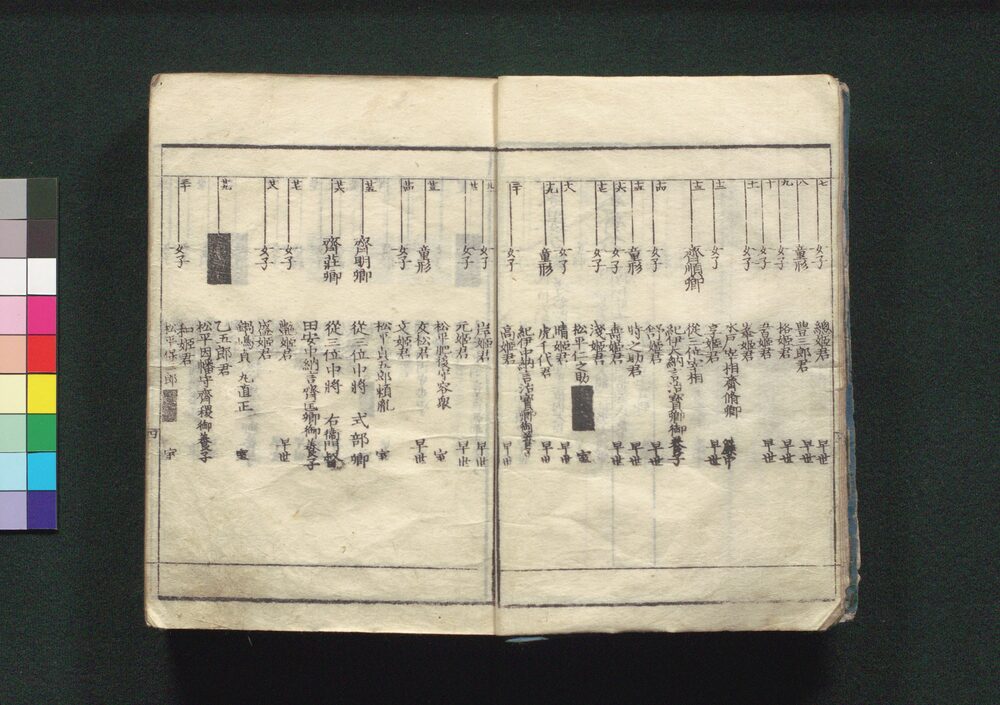 七 女子 總姫君 早世
八 童形 豊三郎君 早世
九 女子 格姫君 早世
十 女子 姫君 早世
十一 女子 峯姫君
水戸宰相齊脩卿 簾中
十二 女子 亨姫君 早世
十三 齊順卿 從三位宰相
紀伊大納言治寶卿御養子
十四 女子 舒姫君 早世
十五 童形 時之助君 早世
十六 女子 壽姫君 早世
十七 女子 淺姫君
松平仁之助 室
十八 女子 晴姫君 早世
十九 童形 虎千代君 早世
紀伊中納言治寶卿御養子
二十 女子 高姫君 早世
廿一 女子 岸姫君 早世
廿二 女子 元姫君 早世
松平肥後守容衆 室
廿三 童形 友松君 早世
廿四 女子 文姫君
松平貞五郎頼胤 室
廿五 齊明卿 從三位中將 式部卿
廿六 齊荘卿 從三位中將 右衛門督
田安中納言齊匡卿御養子
廿七 女子 艶姫君 早世
廿八 女子 盛姫君
鍋嶋貞丸直正 室
廿九 乙五郎君
松平因幡守齊稷御養子
三十 女子 和姫君
松平保三郎 室